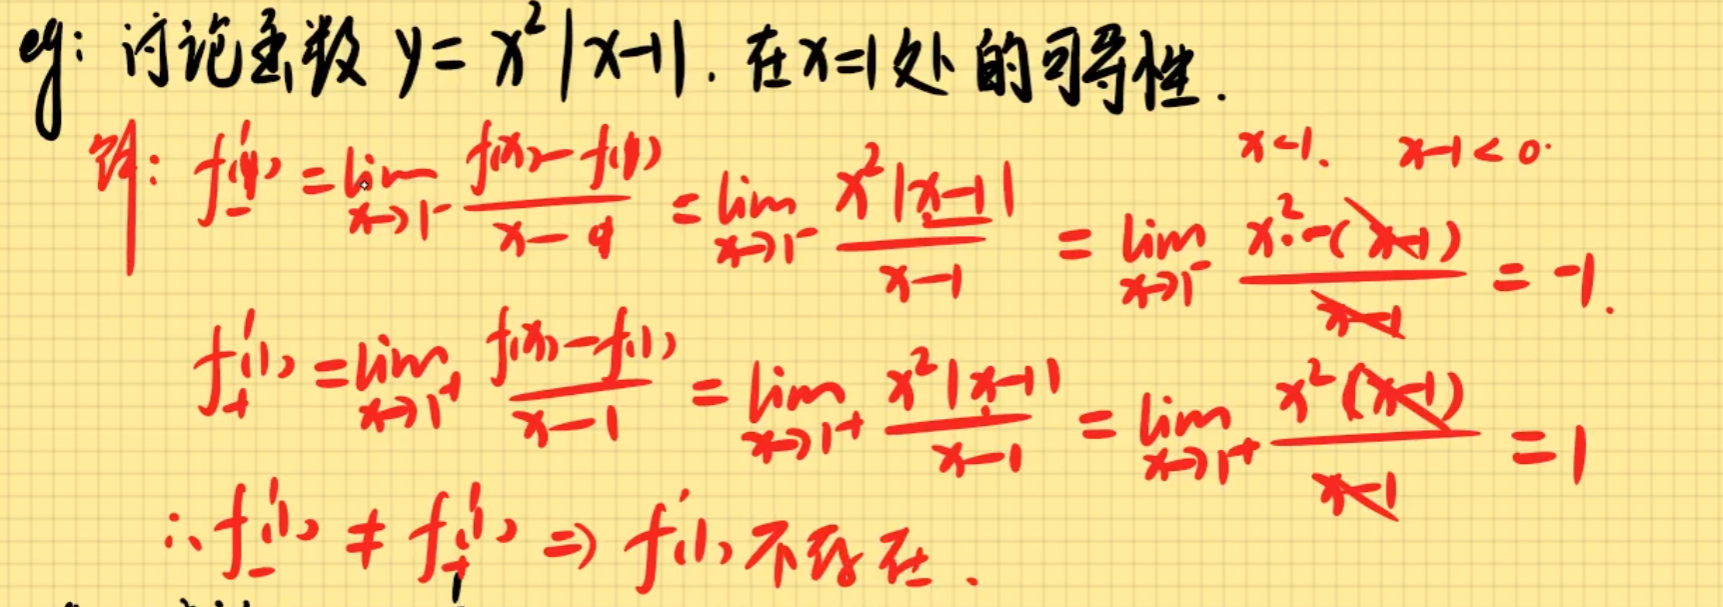 eg: 讨论函数 y = x²|x-1|. 在x=1处的可导性.
x<1. x-1<0.
解: f₋'(1) = lim_{x→1⁻} (f(x)-f(1))/(x-1) = lim_{x→1⁻} x²|x-1|/(x-1) = lim_{x→1⁻} x²·-(x-1)/(x-1) = -1.
f₊'(1) = lim_{x→1⁺} (f(x)-f(1))/(x-1) = lim_{x→1⁺} x²|x-1|/(x-1) = lim_{x→1⁺} x²(x-1)/(x-1) = 1
∴ f₋'(1) ≠ f₊'(1) ⇒ f'(1) 不存在.